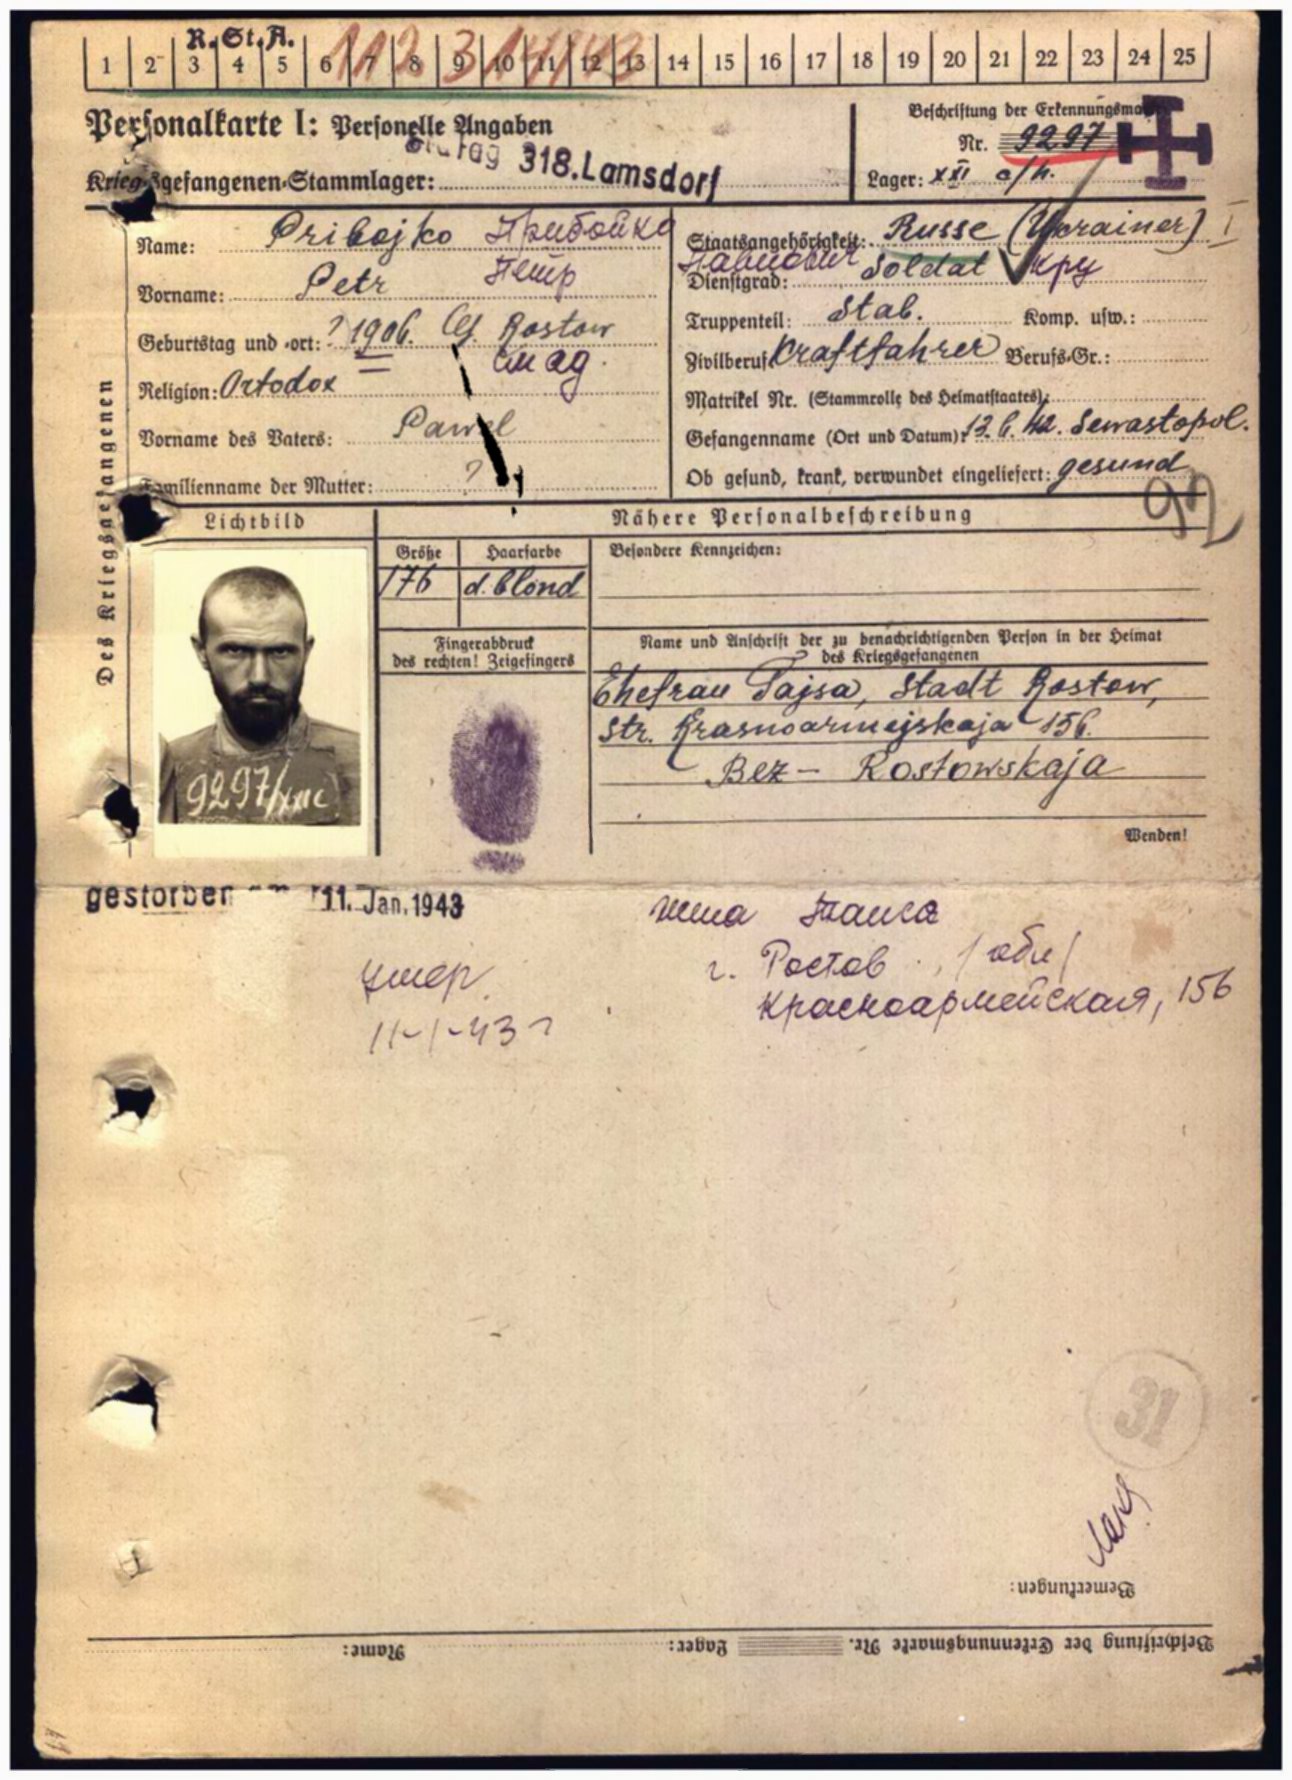 R. St. A.
1 2 3 4 5 6 7 8 9 10 11 12 13 14 15 16 17 18 19 20 21 22 23 24 25
Personalkarte I: Personelle Angaben
Beschriftung der Erkennungsmarke
Nr. 9297
Kriegsgefangenen-Stammlager: Stalag 318. Lamsdorf
Lager: XXI c/h.
Des Kriegsgefangenen
Name: Pribojko Прибойко
Staatsangehörigkeit: Russe (Ukrainer) I
Павлович
Vorname: Petr Петр
Dienstgrad: Soldat кру
Geburtstag und -ort: ? 1906. Rostow
Truppenteil: Stab. Komp. usw.:
Zivilberuf: Kraftfahrer Berufs-Gr.:
Religion: Ortodox
Matrikel Nr. (Stammrolle des Heimatstaates):
Vorname des Vaters: Pawel
Gefangenname (Ort und Datum): 12.6.42. Sewastopol.
Familienname der Mutter: ?
Ob gesund, krank, verwundet eingeliefert: gesund
92
Lichtbild
Nähere Personalbeschreibung
Größe Haarfarbe Besondere Kennzeichen:
176 d. blond
Fingerabdruck
des rechten! Zeigefingers
Name und Anschrift der zu benachrichtigenden Person in der Heimat
des Kriegsgefangenen
Ehefrau Tajsa, Stadt Rostow,
Str. Krasnoarmejskaja 156.
Bez - Rostowskaja
9297/XXIc
Wenden!
gestorben am 11. Jan. 1943
жена Таиса
г. Ростов /обл/
Красноармейская, 156
умер
11-1-43 г
31
Bemerkungen:
Beschriftung der Erkennungsmarke Nr. Lager: Name: